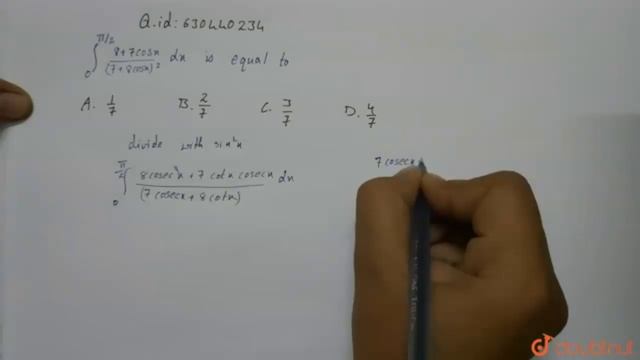 Q.id: 630440234
∫₀^π/2 8+7cosx/(7+8cosx)² dx is equal to
A. 1/7 B. 2/7 C. 3/7 D. 4/7
divide with sin²x
∫₀^π/2 8cosec²x+7 cotx cosecx/(7cosecx+8cotx) dx
7cosecx
doubtnut